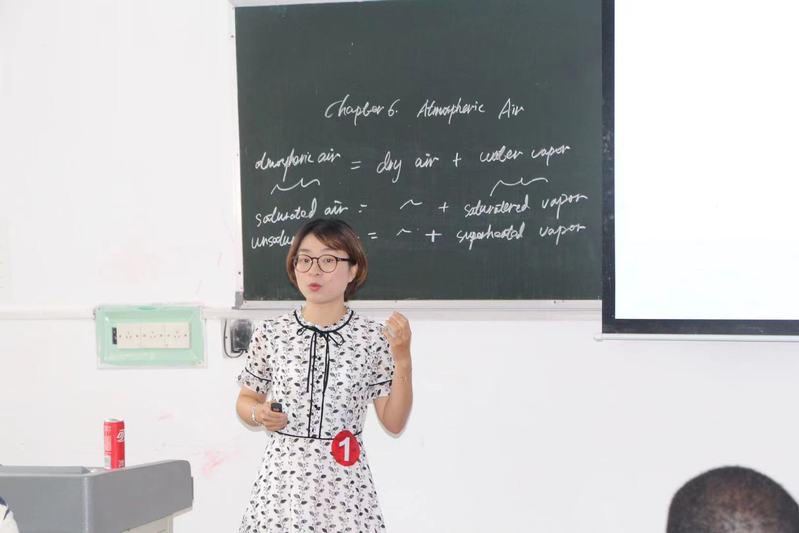 Chapter 6. Atmospheric Air
atmospheric air = dry air + water vapor
saturated air = ~ + saturatered vapor
= ~ + superheated vapor
1